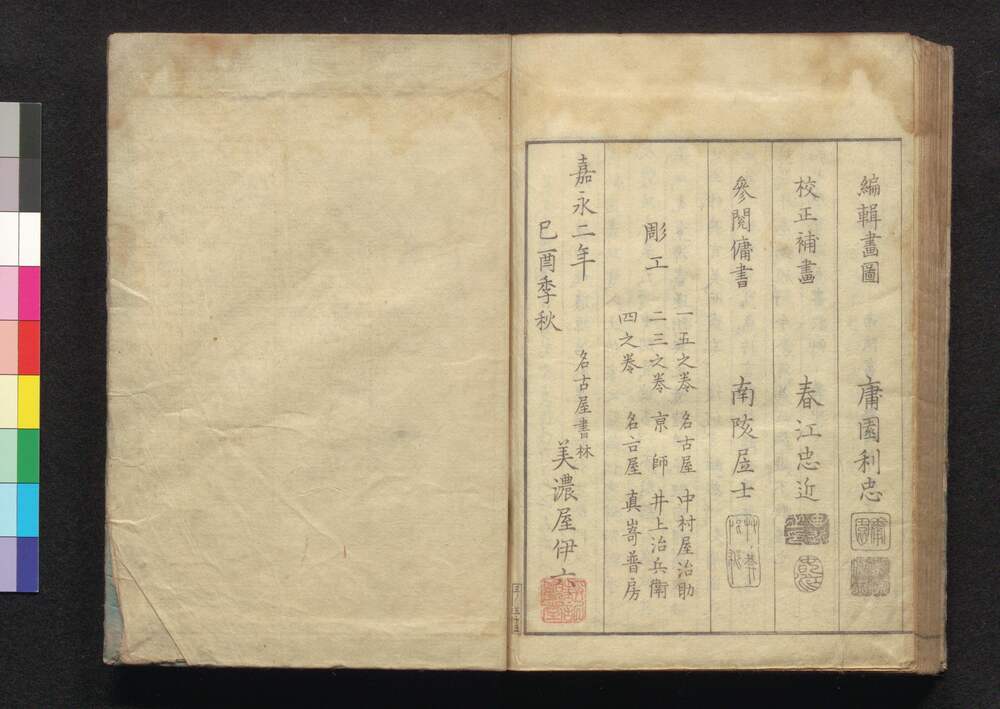 編輯畫圖 庸園利忠
校正補畫 春江忠近
參閲傭書 南陔居士
一五之巻 名古屋 中村屋治助
彫工 二三之巻 京師 井上治兵衛
四之巻 名古屋 真嵜普房
嘉永二年
己酉季秋
名古屋書林
美濃屋伊六